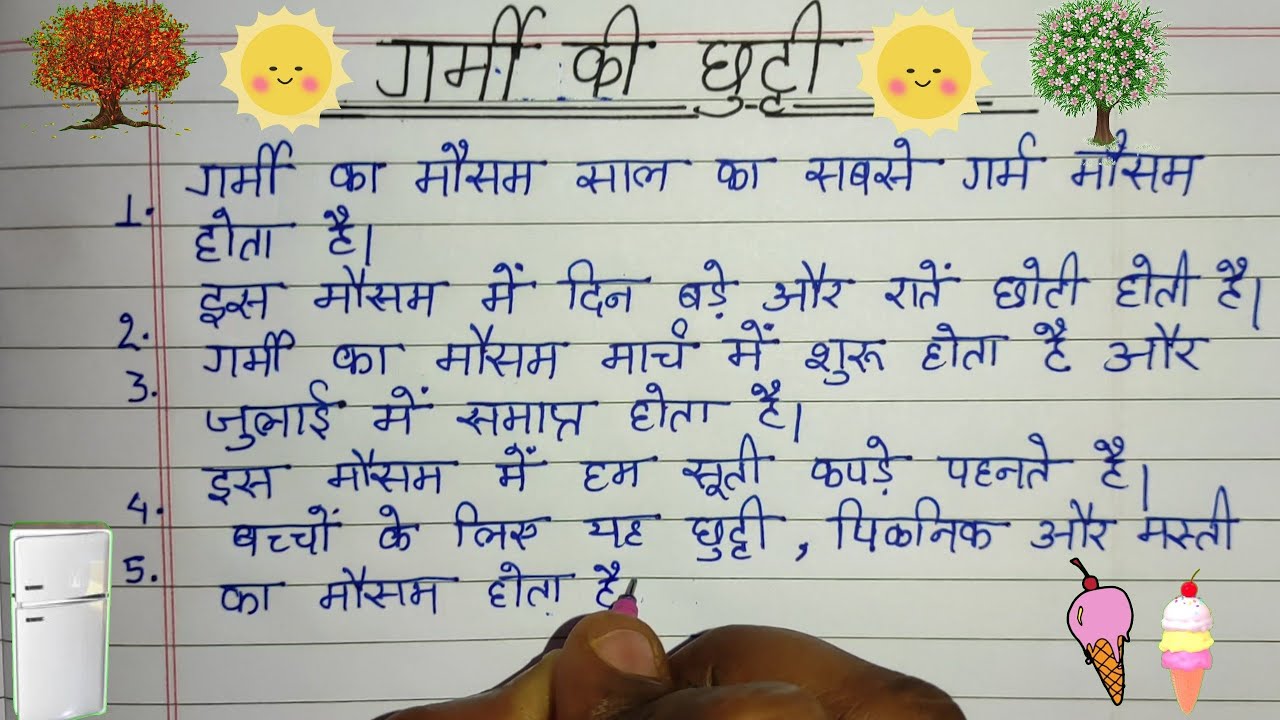 गर्मी की छुट्टी
1. गर्मी का मौसम साल का सबसे गर्म मौसम
होता है।
2. इस मौसम में दिन बड़े और रातें छोटी होती है।
3. गर्मी का मौसम मार्च में शुरू होता है और
जुलाई में समाप्त होता है।
4. इस मौसम में हम सूती कपड़े पहनते है।
5. बच्चों के लिए यह छुट्टी, पिकनिक और मस्ती
का मौसम होता है